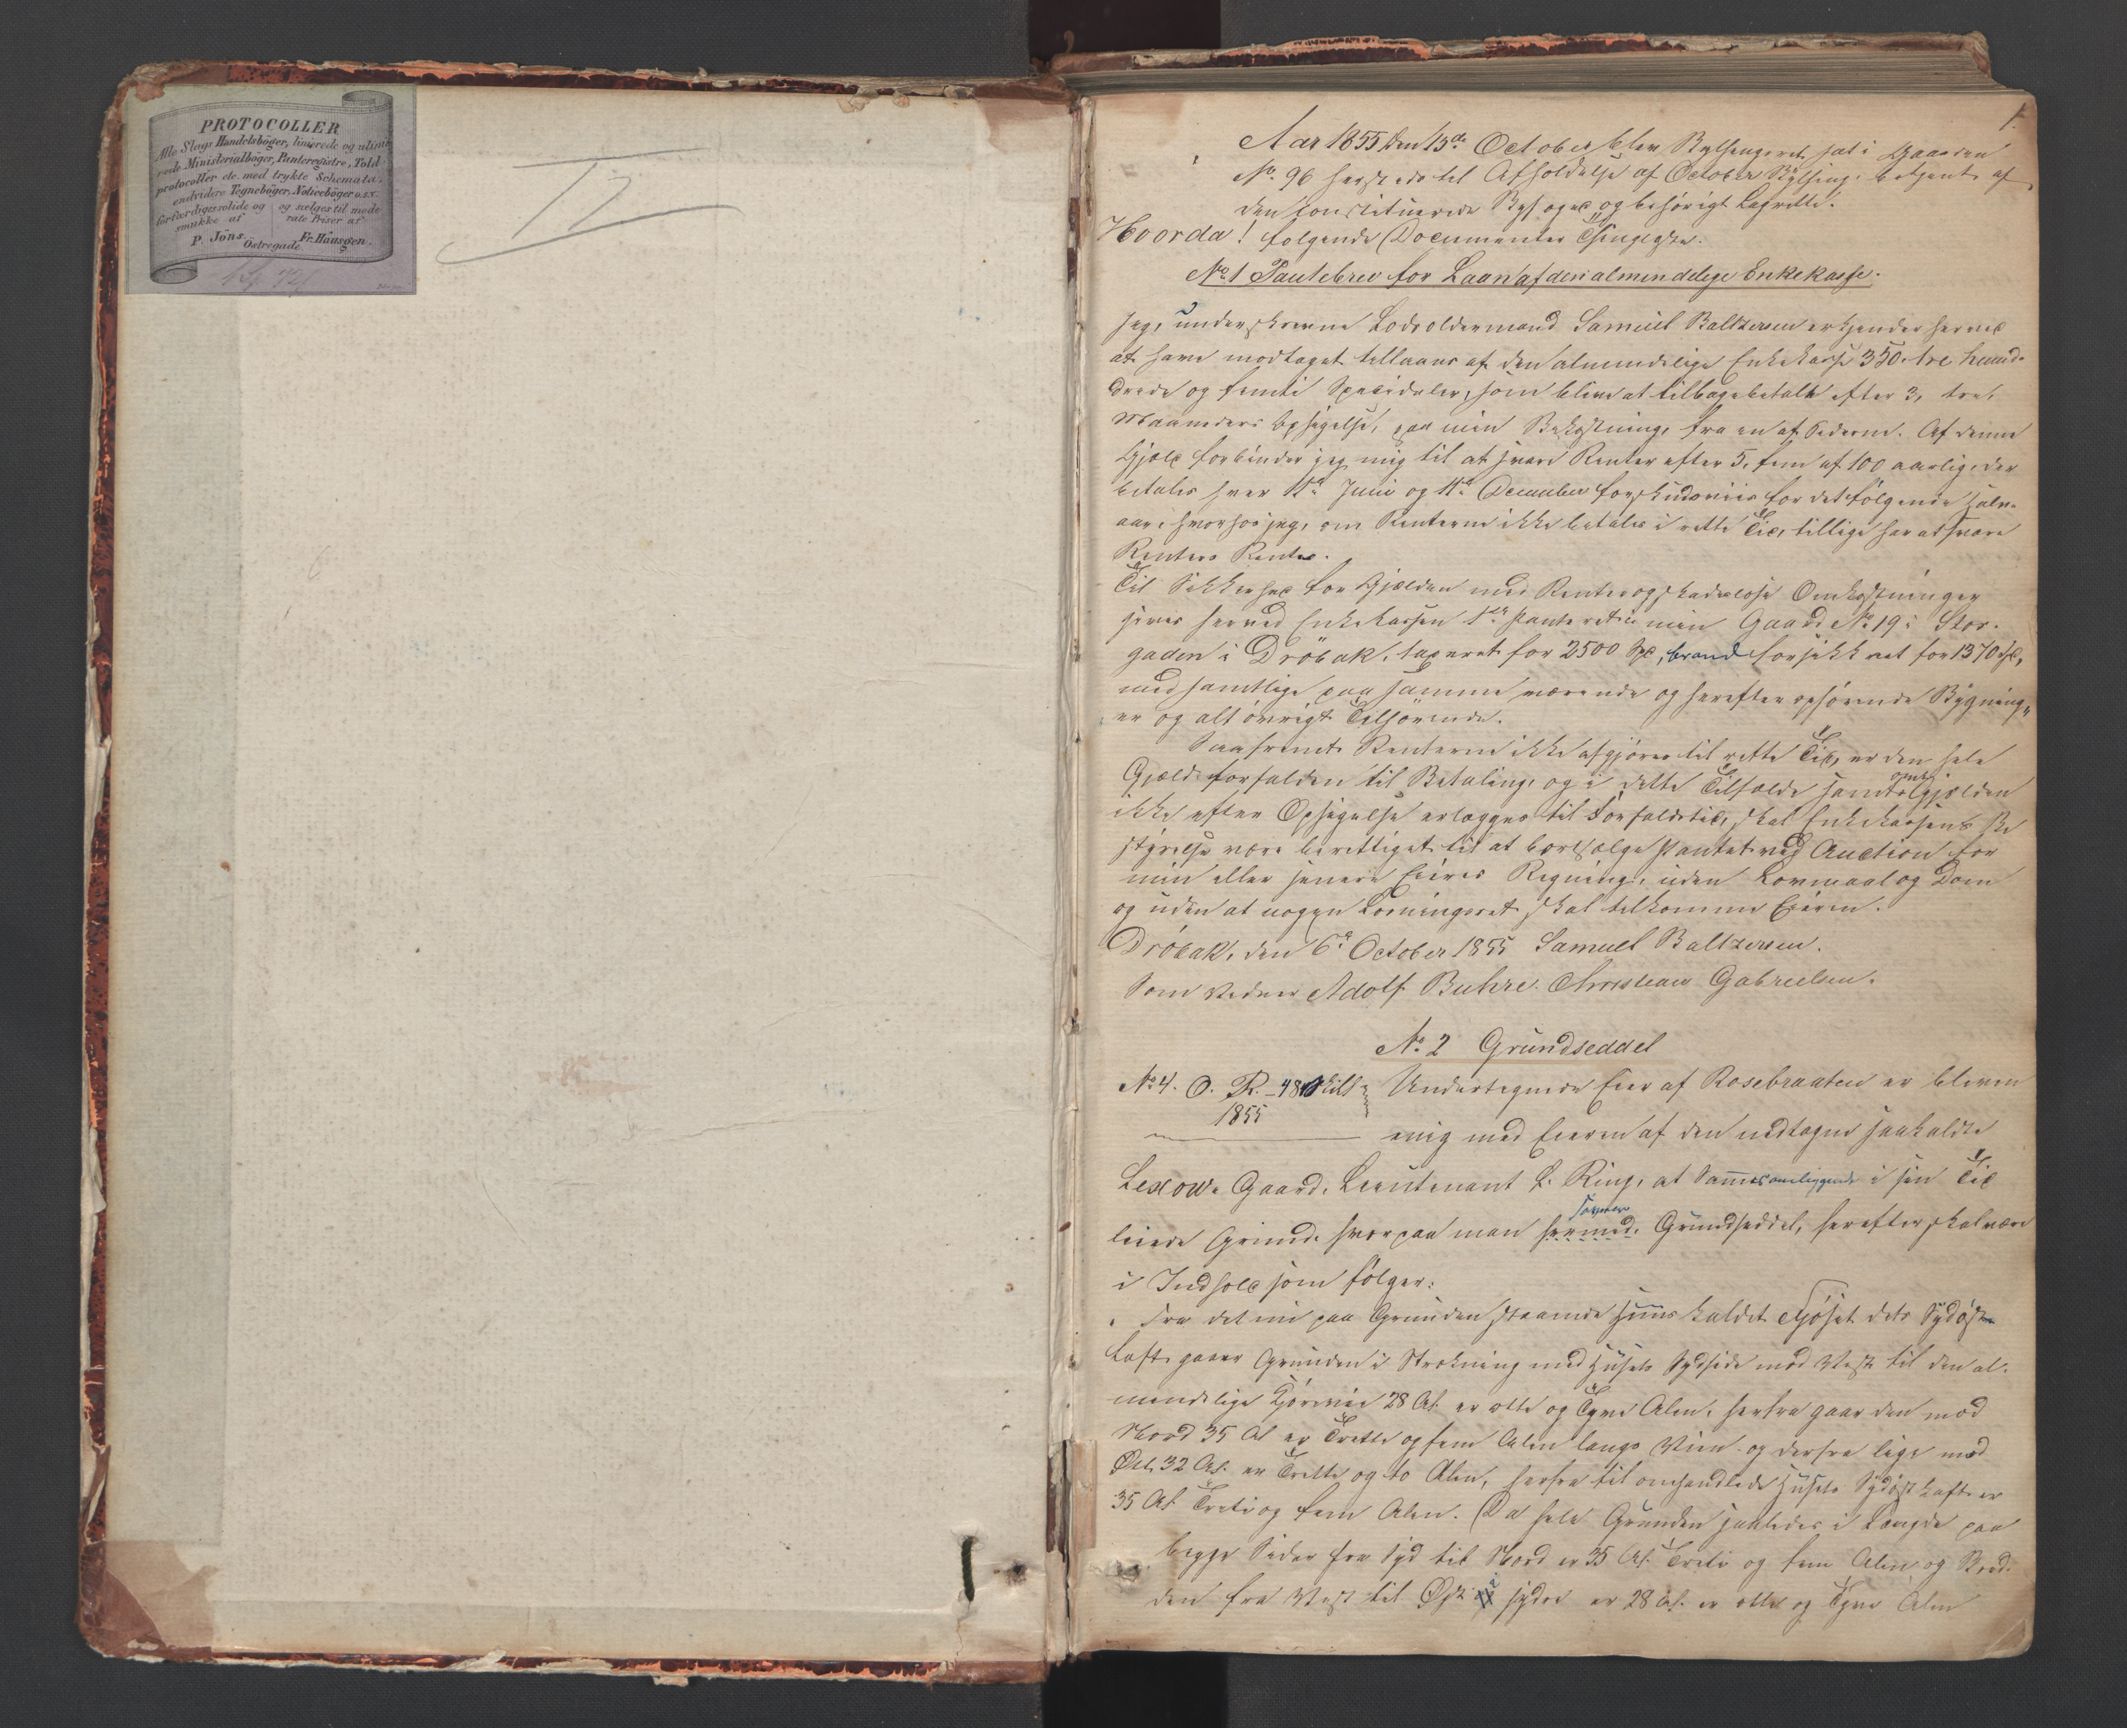 PROTOCOLLER
Alle Slags Handelsböger, linierede og ulinie
rede Ministerialböger, Panteregistre, Told-
protocoller etc. med trykte Schemata,
endvidere Tegneböger, Noticeböger o.s.v.
forfærdiges solide og smukke af
og sælges til mode rate Priser af
P. Jöns. Fr. Häusgen.
Östregade
II
1.
Aar 1855 den 13de October blev Bythingsret sat i Gaarden
No. 96 hersteds til Afholdelse af October Bything, betjent af
den constituerede Byfoged og behörigt Lagrette.
Hvorda! følgende Documenter Thinglyste.
No. 1 Pantebrev for Laan af den almindelige Enkekasse.
Jeg, underskrevne Lodsoldermand Samuel Baltzersen erkjender herved
at have modtaget tillaans af den almindelige Enkekasse 350. tre hund-
drede og femti Speciedaler, som blive at tilbagebetale efter 3, tre,
Maaneders Opsigelse, paa min Bekostning, fra en af Siderne. Af denne
Gjæld forbinder jeg mig til at svare Renter efter 5, fem af 100 aarlig, der
betales hver 11te Juni og 11te December forskudsviis for det følgende halv-
aar, hvorhos jeg, om Renterne ikke betales i rette Tid, tillige har at svare
Renters Rente.
Til Sikkerhed for Gjælden med Renter og skadesløse Omkostninger
gives herved Enkekassen 1ste Panteret i min Gaard No. 19 i Stor-
gaden i Dröbak, taxeret for 2500 Spd, brandforsikkret for 1370 Spd,
med samtlige paa samme værende og herefter opförende Bygning-
er og alt övrigt Tilhörende.
Saafremt Renterne ikke afgjöres til rette Tid, er den hele
Gjæld forfalden til Betaling, og i dette Tilfælde samt om Gjælden
ikke efter Opsigelse erlægges til Forfaldstid, skal Enkekassens Be
styrelse være berettiget til at bortsælge Pantet ved Auction for
min eller senere Eieres Regning, uden Lovmaal og Dom
og uden at nogen Løsningsret skal tilkomme Eieren.
Dröbak, den 6te October 1855 Samuel Baltzersen.
Som Vidner Adolf Buhre. Christian Gabrielsen.
No. 2 Grundseddel
No. 4. O. R. - 48 Skill
1855
Undertegnede Eier af Rosebraaten er bleven
enig med Eieren af den nedtagne saakaldte
Lexow. Gaard, Lieutenant L. Ring, at Sammes omliggende i sin Tid
leiede Grund, hvorpaa man Grundseddel, herefter skal være
i Indhold som følger:
Fra det nu paa Grunden staaende Huus kaldet Fjöset dets Sydöst
gaaer Grunden i Strækning med Husets Sydside mod Vest til den al-
mindelige Kjörevei 28 Al. er otte og Tyve Alen, herfra gaar den mod
Nord 35 Al er Trette og fem Alen langs Veien og derfra lige mod
Øst 32 Al. er Trette og to Alen, herfra til omhandlede Husets er
35 Al. Treti og fem Alen. Da hele Grunden saaledes i Længde paa
begge Sider fra Syd til Nord er 35 Al. Treti og fem Alen og Bred-
den fra Vest til Øst i sydre er 28 Al. er otte og Tyve Alen